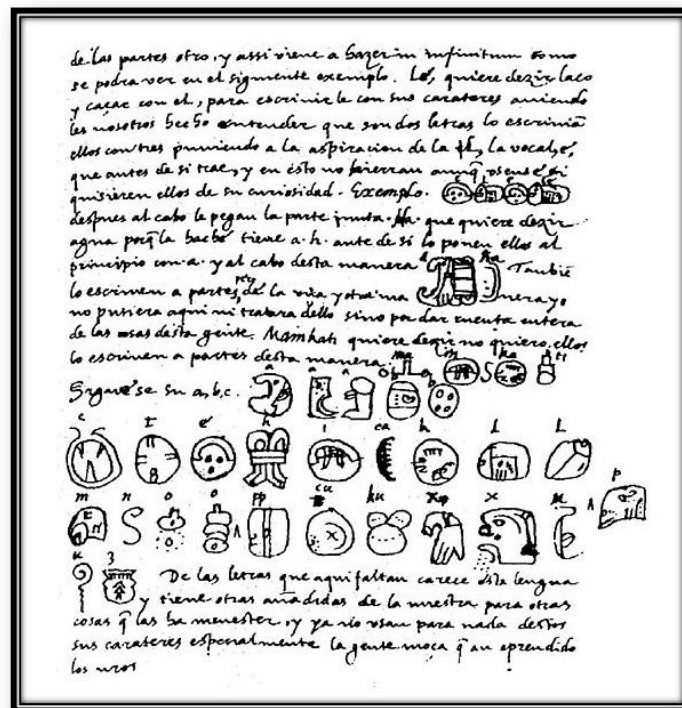 de las partes otro, y assi viene a hazer in infinitum como
se podra ver en el siguiente exemplo. Lé, quiere dezir laço
y caçar con el, para escrivir le con sus carateres aviendo
les nosotros hecho entender que son dos letras lo escrivian
ellos con tres puniendo a la aspiracion de la la vocal, e,
que antes de si trae, y en esto no hierran aunq si
quisieren ellos de su curiosidad. Exemplo.
despues al cabo le pegan la parte junta. Ha que quiere dezir
agua porq la hache tiene a. h. ante de si lo ponen ellos al
principio con a. y al cabo desta manera a ha Tanbie
lo escriven a partes, de la una y otra ma nera yo
no pusiera aqui ni tratara dello sino por dar cuenta entera
de las cosas desta gente. Mainkati quiere dezir no quiero, ellos
lo escriven a partes desta manera. ma i n ka ti
Siguese su a, b, c. a a a b b
c t e h i ca k l l
m n o o pp cu ku x x u p
u z De las letras que aqui faltan carece esta lengua
y tiene otras añadidas de la nuestra para otras
cosas q las ha menester, y ya no usan para nada destos
sus carateres especialmente la gente moça q an aprendido
los nros